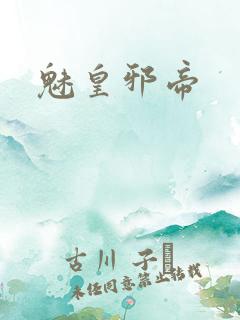 魅皇邪帝
古川 子
未经同意禁止转载